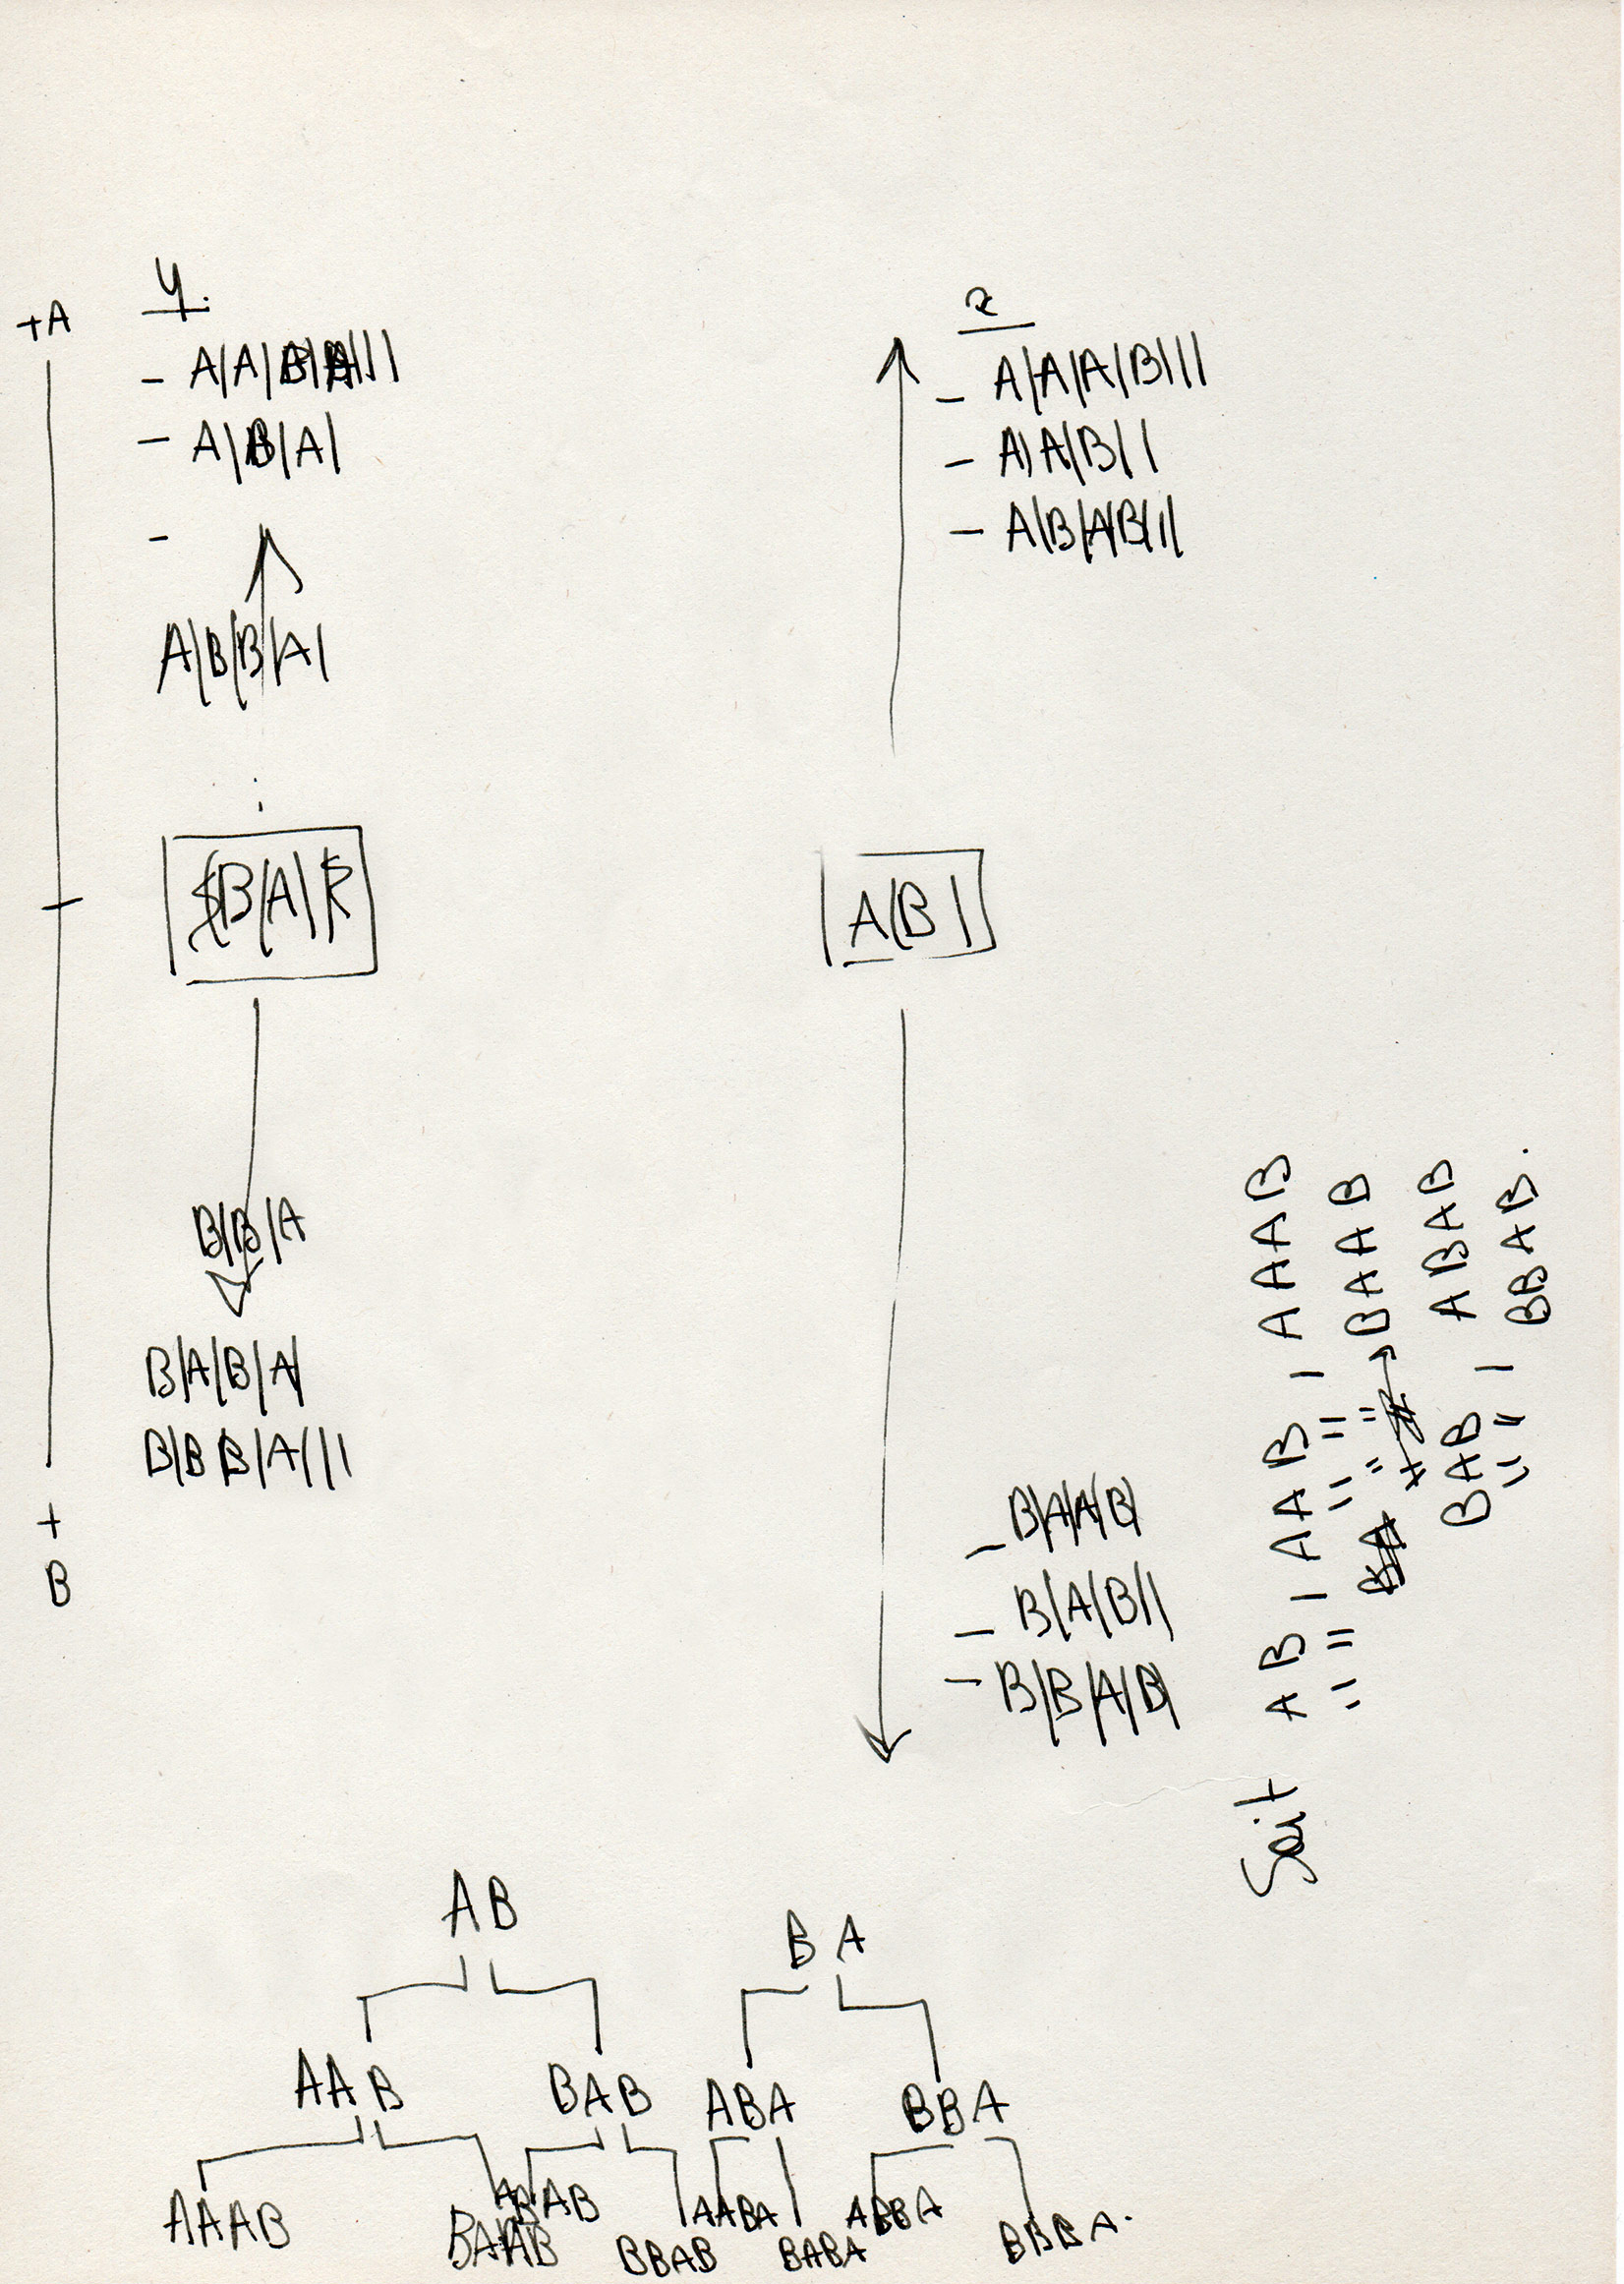 y.
+A
- A|A|B|A|||
- A|B|A|
-
A|B|B|A|
|B|A|
B|B|A
B|A|B|A|
B|B B|A|||
+
B
x
- A|A|A|B|||
- A|A|B||
- A|B|A|B|||
A|B|
- B|A|A|B|
- B|A|B||
- B|B|A|B|
Soit AB | AAB | AAAB
" " " " " → BAAB
BAB ABAB
" " | BBAB.
AB
BA
AAB BAB ABA BBA
AAAB BAAB ABAB BBAB AABA BABA ABBA BBBA.